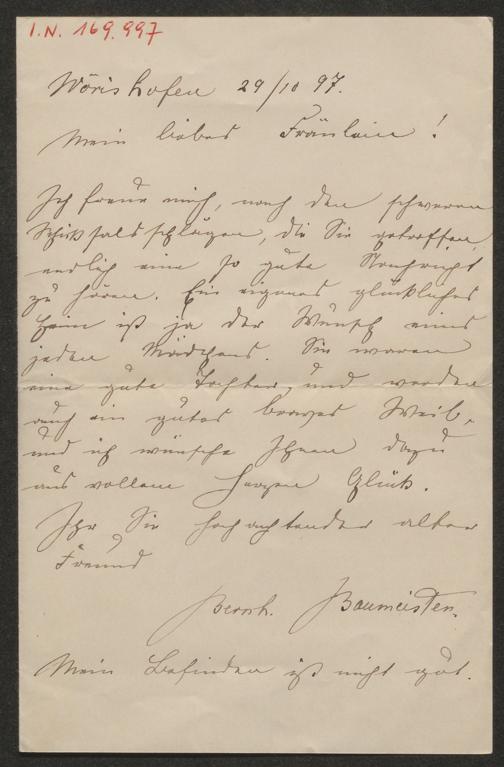 I.N. 169.997
Wörishofen 29/10 97.
Mein liebes Fräulein!
Ich freue mich, nach den schweren
Schicksalsschlägen, die Sie getroffen,
endlich eine so gute Nachricht
zu hören. Ein eigenes glückliches
Heim ist ja der Wunsch eines
jeden Mädchens. Sie waren
eine gute Tochter, und werden
auch ein gutes braves Weib,
und ich wünsche Ihnen dazu
aus vollem Herzen Glück.
Ihr Sie hochachtender alter
Freund
Bernh. Baumeister.
Mein Befinden ist nicht gut.